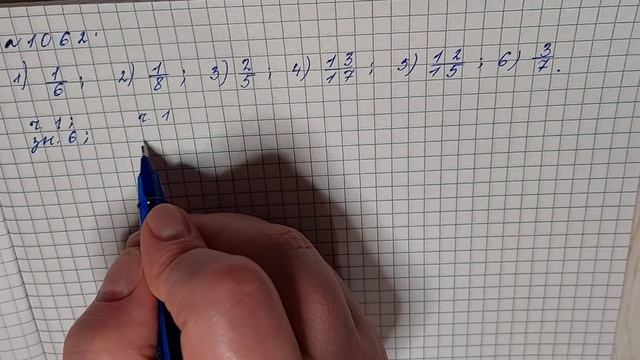 №1062.
1) 1/6; 2) 1/8; 3) 2/5; 4) 13/17; 5) 12/15; 6) 3/7.
ч. 1; ч. 1
зн. 6;